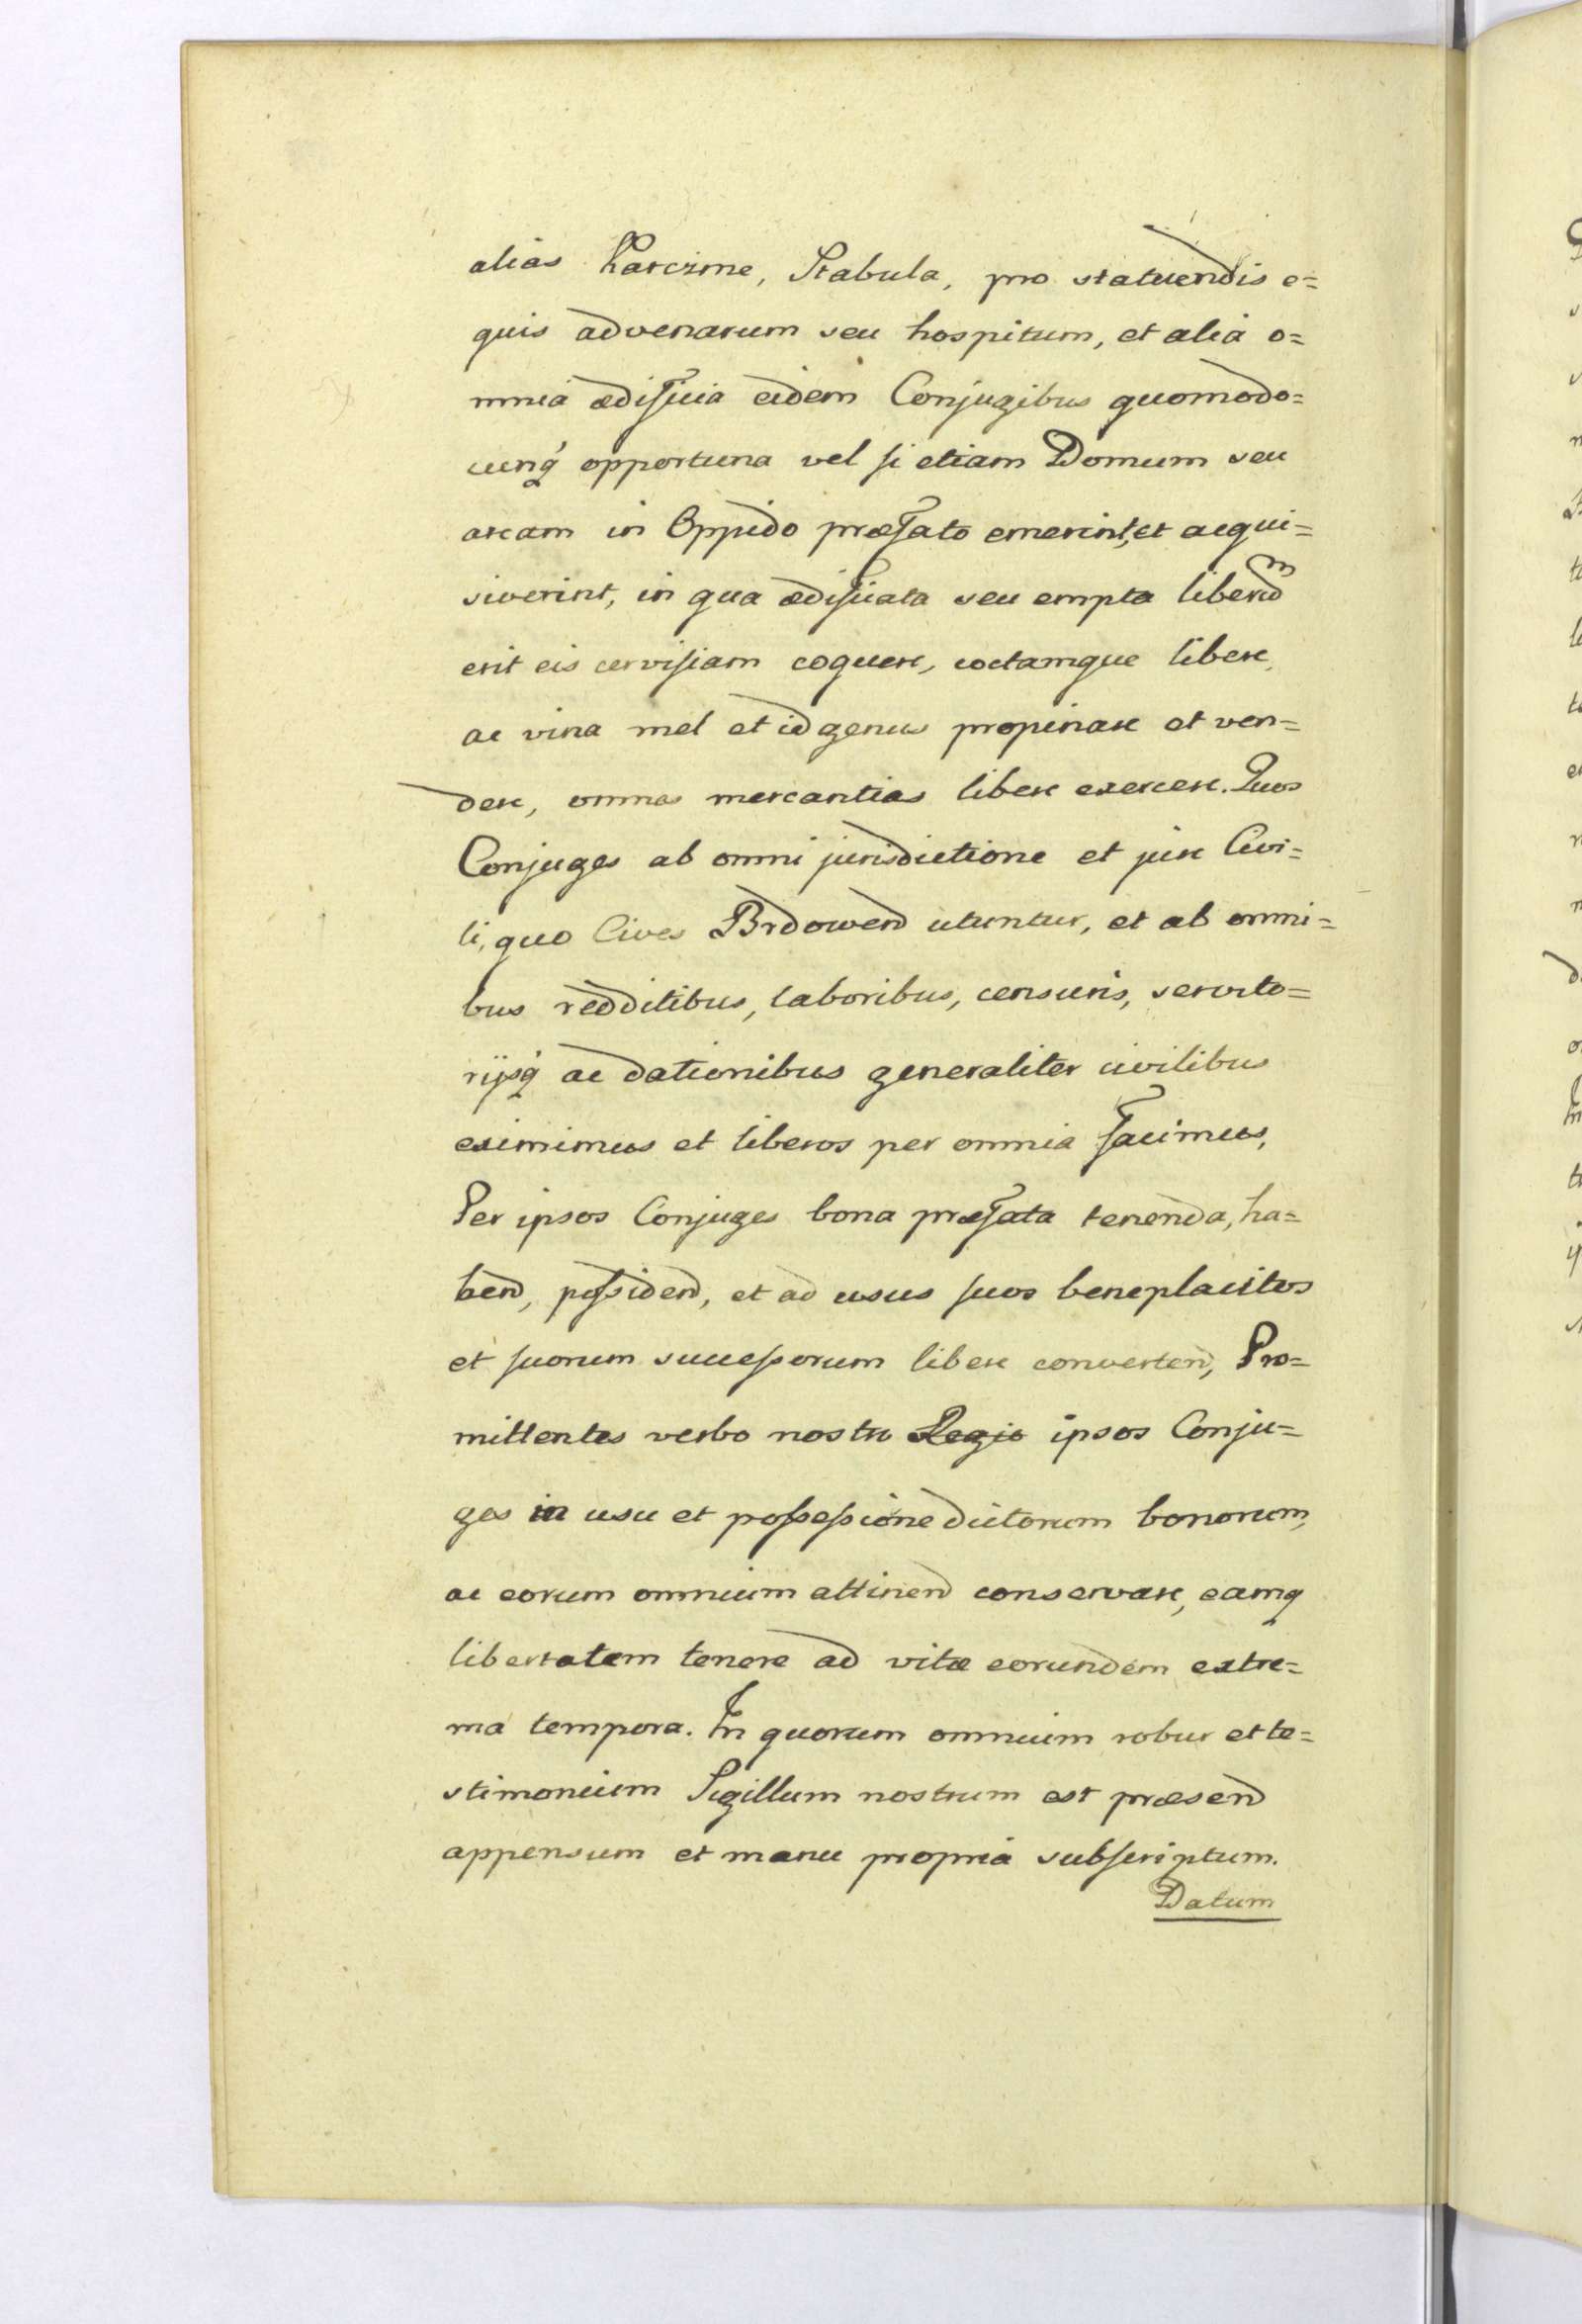 alias Karczme, Stabula, pro statuendis e=
quis advenarum seu hospitum, et alia o=
mnia ædificia eidem Conjugibus quomodo=
cunq́ opportuna vel si etiam Domum seu
aream in Oppido præfato emerint, et acqui=
siverint, in qua ædificata seu empta liberũ
erit eis cervisiam coquere, coctamque libere,
ac vina mel et id genus propinare et ven=
dere, omnes mercantias libere exercere. Quos
Conjuges ab omni jurisdictione et jure Civi=
li, quo Cives Brdowend utuntur, et ab omni=
bus redditibus, laboribus, censuris, servito=
rijsq́ ac dationibus generaliter civilibus
eximimus et liberos per omnia facimus,
Per ipsos Conjuges bona præfata tenenda, ha=
bend, possidend, et ad usus suos beneplacitos
et suorum successorum libere convertend, Pro=
mittentes verbo nostro Regio ipsos Conju=
ges in usu et possessione dictorum bonorum,
ac eorum omnium attinend conservare, eamq
libertatem tenere ad vitæ eorundem extre=
ma tempora. In quorum omnium robur et te=
stimonium Sigillum nostrum est præsend
appensum et manu propria subscriptum.
Datum